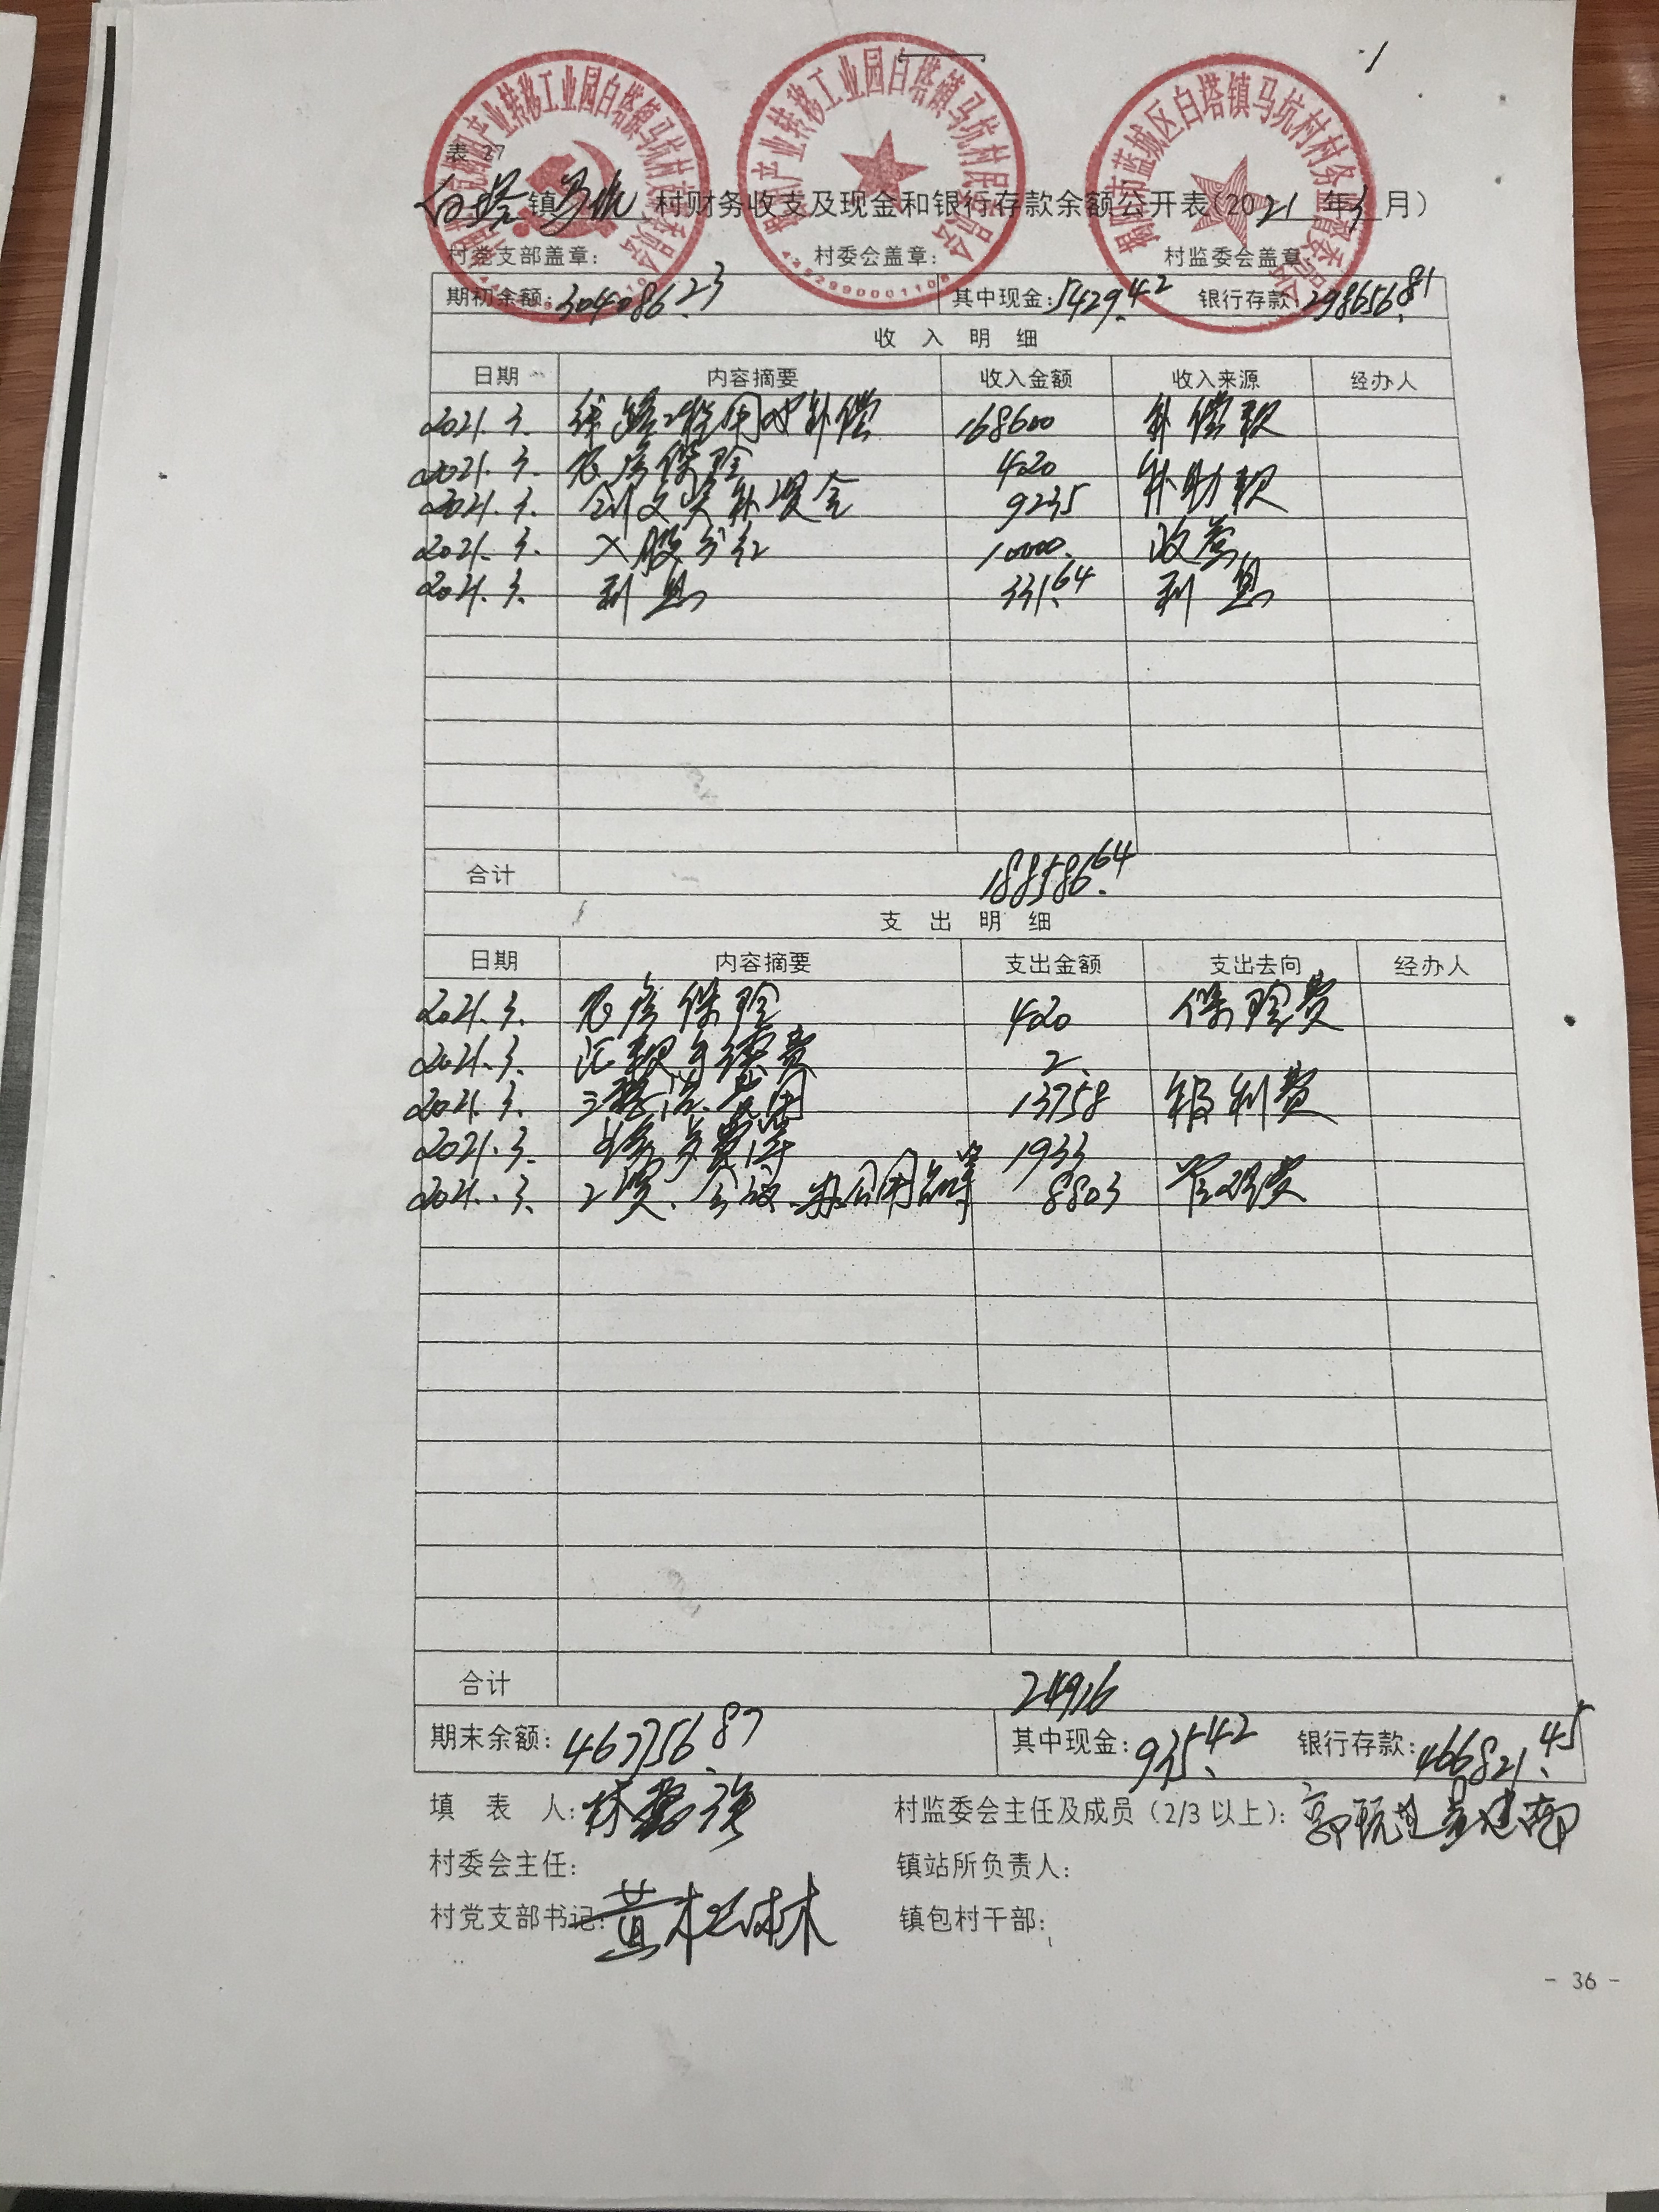 表 27
白塔镇马坑村财务收支及现金和银行存款余额公开表(2021年3月)
村党支部盖章: 村委会盖章: 村监委会盖章:
期初余额:304086.23 其中现金:5429.42 银行存款:298656.81
收入明细
日期 内容摘要 收入金额 收入来源 经办人
2021.3. 补偿 168600 补偿款
2021.3. 农房保险 420 补助款
2021.3. 创文奖补资金 9235
2021.3. 入股分红 10000. 收益
2021.3. 利息 331.64 利息
合计 188586.64
支出明细
日期 内容摘要 支出金额 支出去向 经办人
2021.3. 农房保险 420 保险费
2021.3. 汇款手续费 2.
2021.3. 费用 13758 福利费
2021.3. 费等 1933
2021.3. 办公用品等 8803 管理费
合计 24916
期末余额:467756.87 其中现金:935.42 银行存款:466821.45
填表人: 村监委会主任及成员(2/3以上):
村委会主任: 镇站所负责人:
村党支部书记: 镇包村干部:
- 36 -